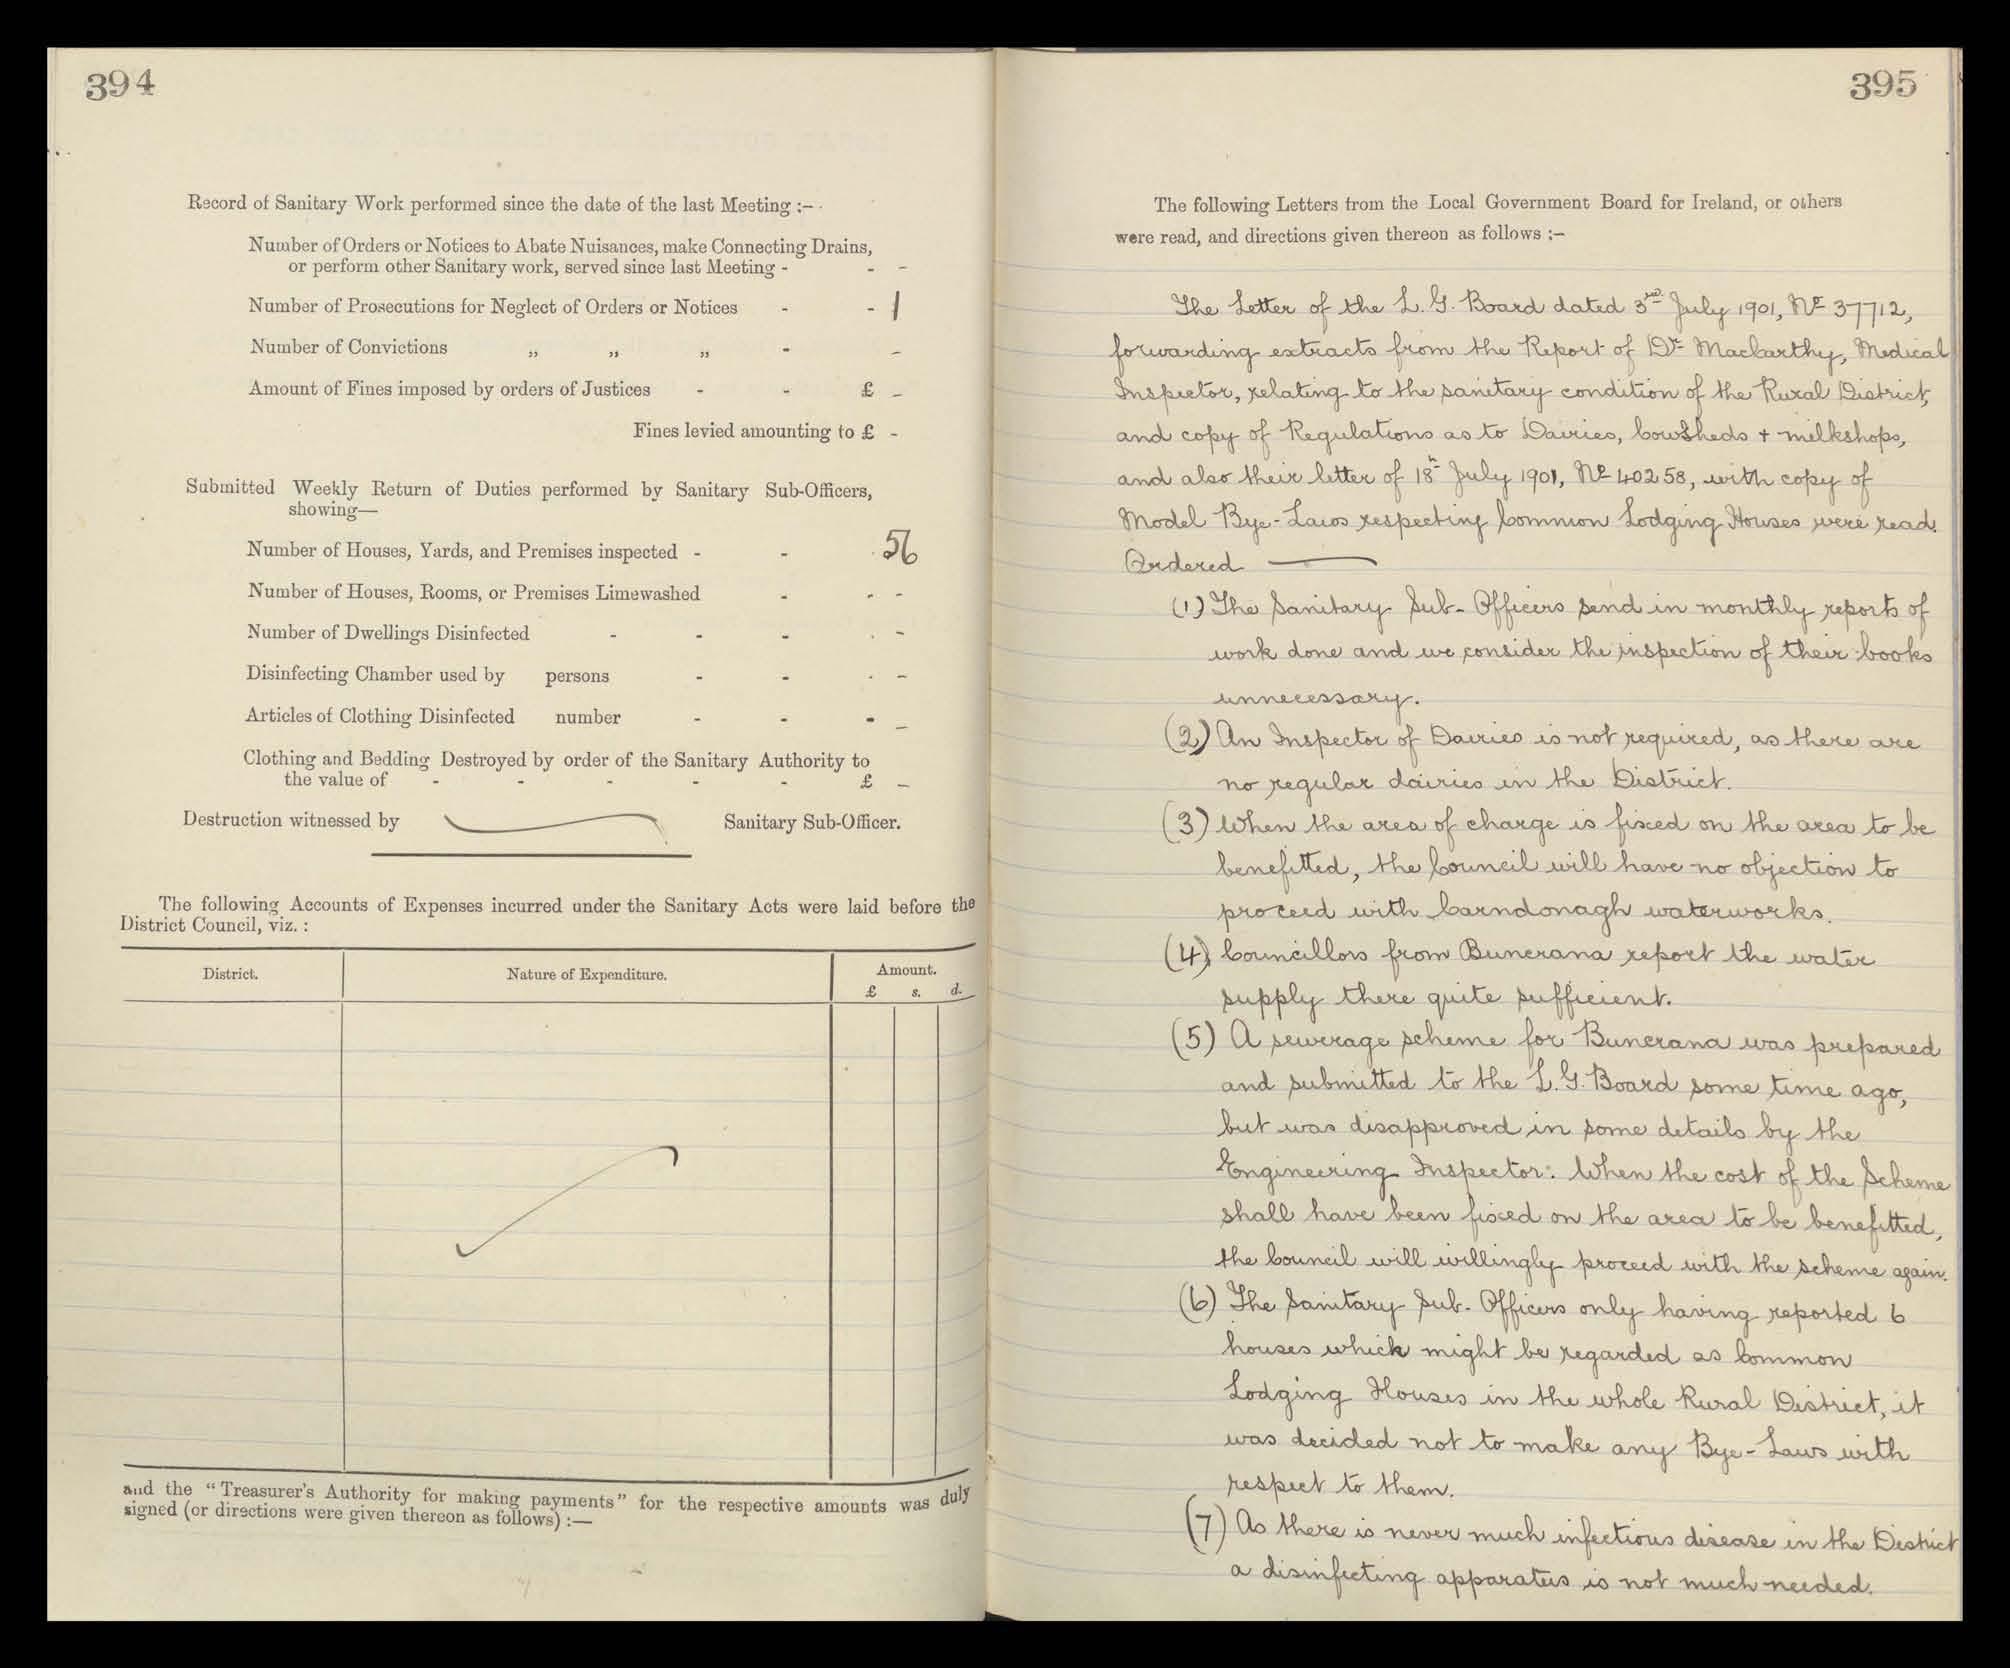 394
Record of Sanitary Work performed since the date of the last Meeting :—
Number of Orders or Notices to Abate Nuisances, make Connecting Drains,
or perform other Sanitary work, served since last Meeting - - -
Number of Prosecutions for Neglect of Orders or Notices - - 1
Number of Convictions „ „ „ - -
Amount of Fines imposed by orders of Justices - - £ -
Fines levied amounting to £ -
Submitted Weekly Return of Duties performed by Sanitary Sub-Officers,
showing—
Number of Houses, Yards, and Premises inspected - - 56
Number of Houses, Rooms, or Premises Limewashed - - -
Number of Dwellings Disinfected - - - - -
Disinfecting Chamber used by persons - - - -
Articles of Clothing Disinfected number - - - -
Clothing and Bedding Destroyed by order of the Sanitary Authority to
the value of - - - - - £ -
Destruction witnessed by Sanitary Sub-Officer.
The following Accounts of Expenses incurred under the Sanitary Acts were laid before the
District Council, viz. :
District. Nature of Expenditure. Amount.
£ s. d.
and the "Treasurer's Authority for making payments" for the respective amounts was duly
signed (or directions were given thereon as follows) :—
395
The following Letters from the Local Government Board for Ireland, or others
were read, and directions given thereon as follows :—
The Letter of the L. G. Board dated 3rd July 1901, No 37712,
forwarding extracts from the Report of Dr MacCarthy, Medical
Inspector, relating to the sanitary condition of the Rural District,
and copy of Regulations as to Dairies, CowSheds + milkshops,
and also their letter of 18th July 1901, No 40258, with copy of
Model Bye-Laws respecting Common Lodging Houses were read.
Ordered —
(1) The Sanitary Sub-Officers send in monthly reports of
work done and we consider the inspection of their books
unnecessary.
(2) An Inspector of Dairies is not required, as there are
no regular dairies in the District.
(3) When the area of charge is fixed on the area to be
benefitted, the Council will have no objection to
proceed with Carndonagh waterworks.
(4) Councillors from Buncrana report the water
supply there quite sufficient.
(5) A sewerage scheme for Buncrana was prepared
and submitted to the L. G. Board some time ago,
but was disapproved in some details by the
Engineering Inspector: When the cost of the Scheme
shall have been fixed on the area to be benefitted,
the Council will willingly proceed with the scheme again.
(6) The Sanitary Sub-Officers only having reported 6
houses which might be regarded as Common
Lodging Houses in the whole Rural District, it
was decided not to make any Bye-Laws with
respect to them.
(7) As there is never much infectious disease in the District
a disinfecting apparatus is not much needed.